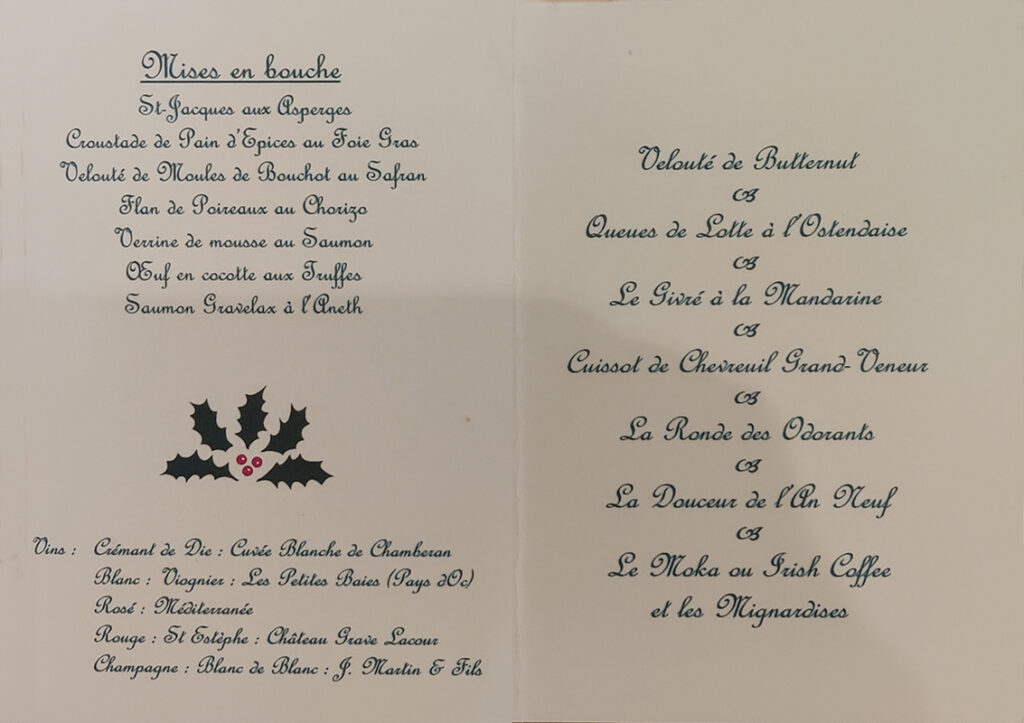 Mises en bouche
St-Jacques aux Asperges
Croustade de Pain d'Epices au Foie Gras
Velouté de Moules de Bouchot au Safran
Flan de Poireaux au Chorizo
Verrine de mousse au Saumon
Œuf en cocotte aux Truffes
Saumon Gravelax à l'Aneth
Vins : Crémant de Die : Cuvée Blanche de Chamberan
Blanc : Viognier : Les Petites Baies (Pays d'Oc)
Rosé : Méditerranée
Rouge : St Estèphe : Château Grave Lacour
Champagne : Blanc de Blanc : J. Martin & Fils
Velouté de Butternut
Queues de Lotte à l'Ostendaise
Le Givré à la Mandarine
Cuissot de Chevreuil Grand-Veneur
La Ronde des Odorants
La Douceur de l'An Neuf
Le Moka ou Irish Coffee
et les Mignardises